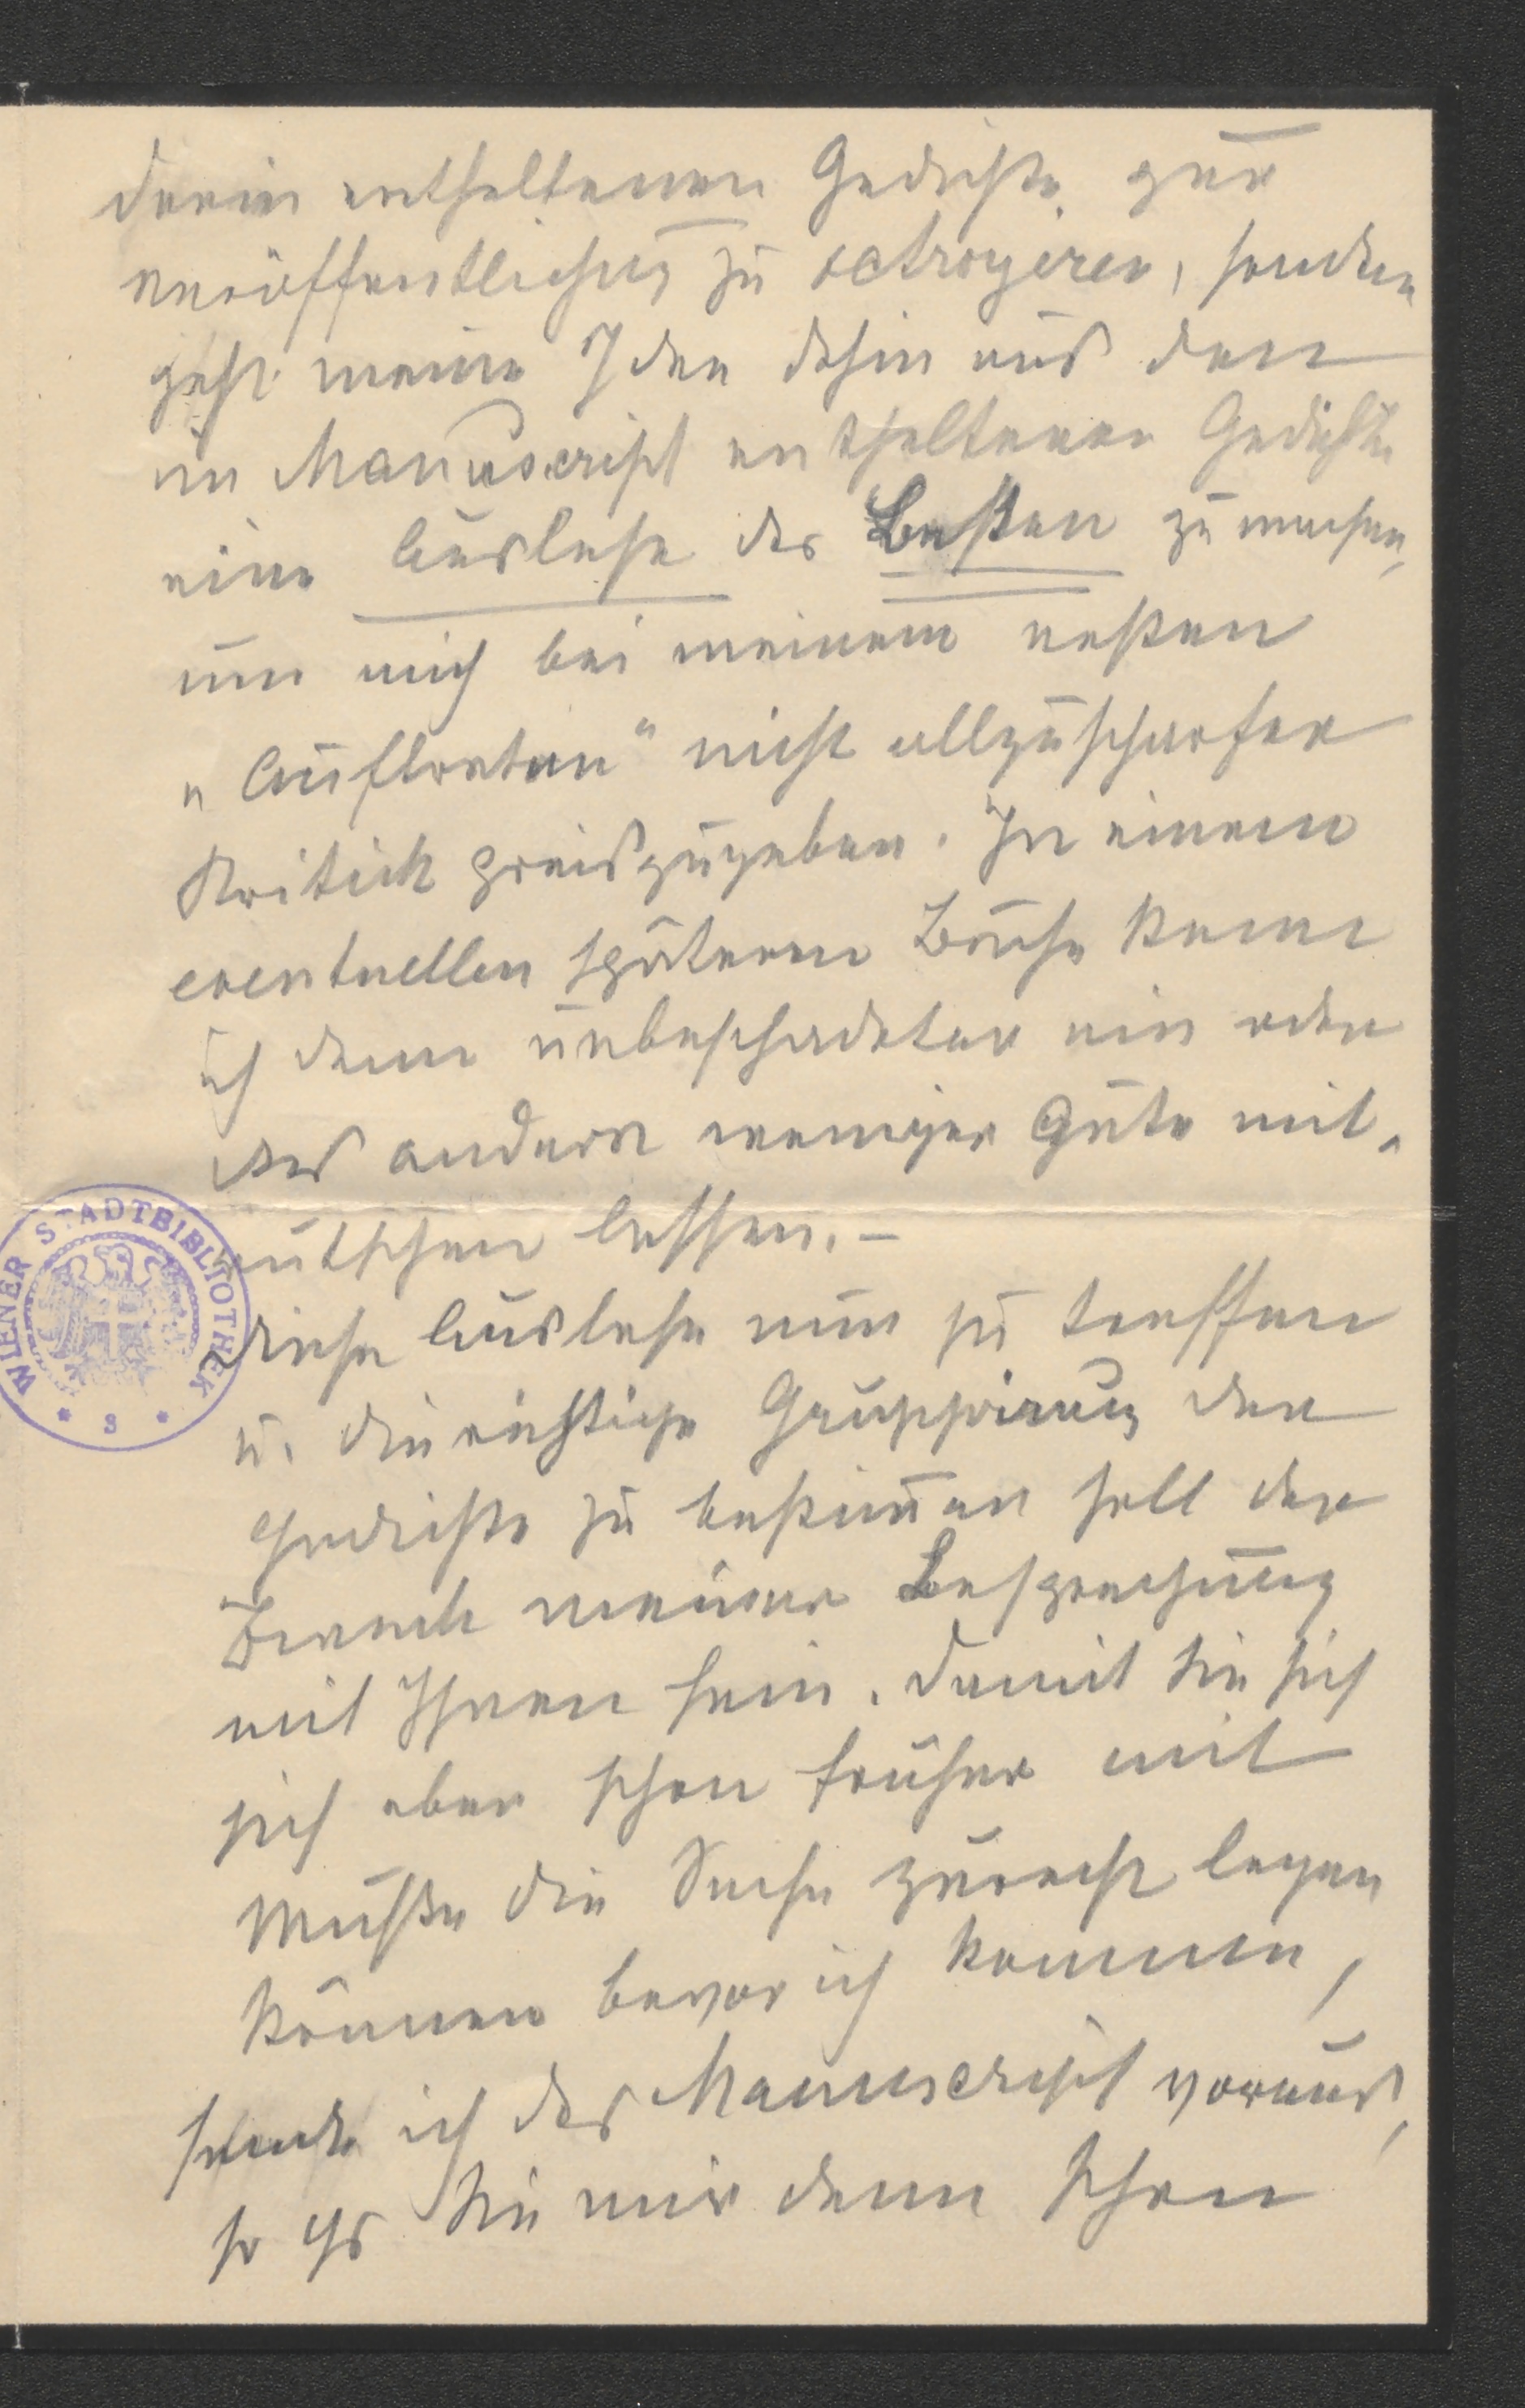 darin enthaltenen Gedichte zur
Veröffentlichung zu octroyiren, sondern
geht meine Idee dahin aus den
im Manuscript enthaltenen Gedichten
eine Auslese des Besten zu machen,
um mich bei meinem ersten
„Auftreten" nicht allzuscharfer
Kritick preiszugeben. In einem
eventuellen späteren Buche kann
ich dann unbeschadeter ein oder
das andere weniger Gute mit-
rutschen lassen. –
Diese Auslese nun zu treffen
u. die richtige Gruppirung der
Gedichte zu bestim̅en soll der
Zweck meiner Besprechung
mit Ihnen sein. Damit Sie sich
sich aber schon früher mit
Muße die Sache zurecht legen
können bevor ich komme,
sende ich das Manuscript voraus,
Sie mir dann schon
WIENER STADTBIBLIOTHEK